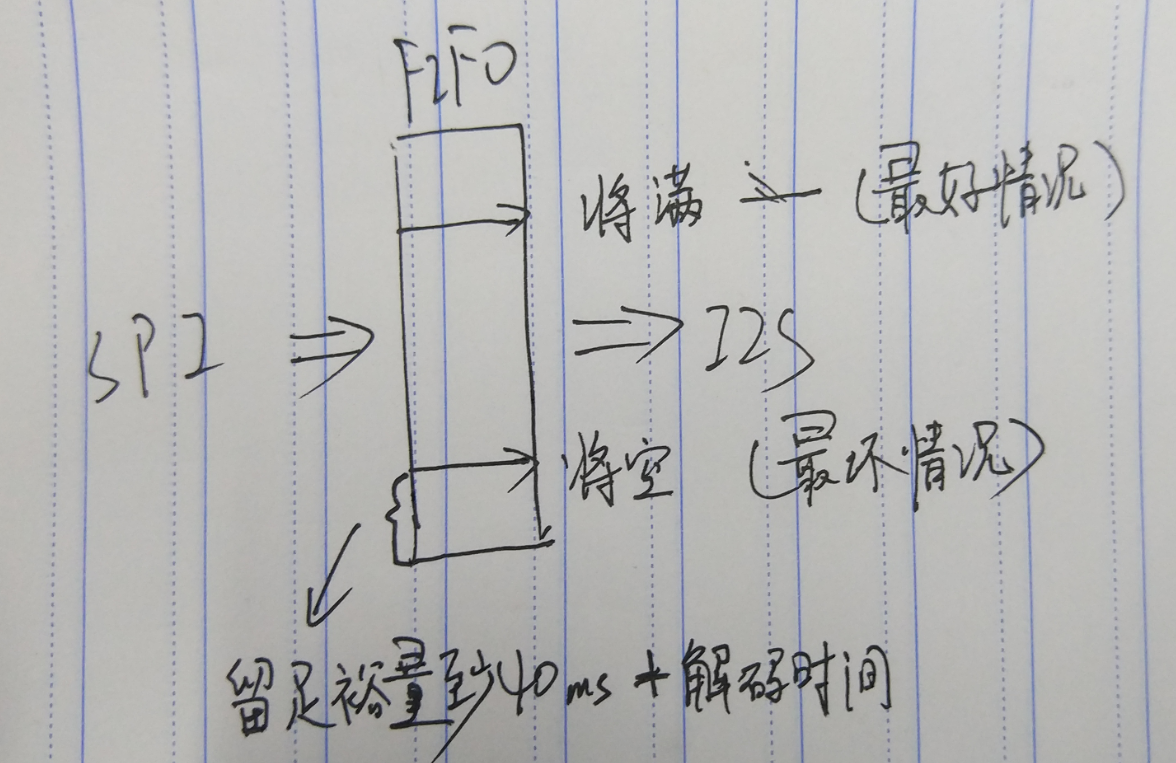 FIFO
将满 (最好情况)
SPI ⇒ ⇒ I2S
将空 (最坏情况)
留足裕量至少40ms+解码时间